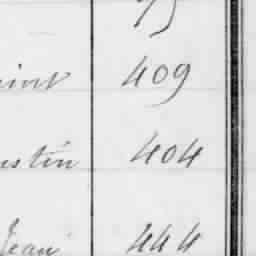 75
oint 409
ustin 404
Jean 444